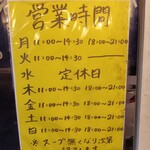 営業時間
月 11:00~14:30 18:00~21:00
火 11:00~14:30
水 定休日
木 11:00~14:30 18:00~21:00
金 11:00~14:30 18:00~21:00
土 11:00~14:30 18:00~21:00
日 11:00~14:30 18:00~21:00
※ スープ無くなり次第